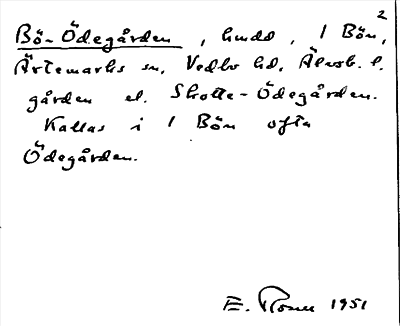 2
Bö-Ödegården, hmdd, 1 Bön,
Ärtemarks sn, Vedbo hd, Älvsb. l.
gården el. Skotte-Ödegården.
Kallas i 1 Bön ofta
Ödegården.
E. 1951